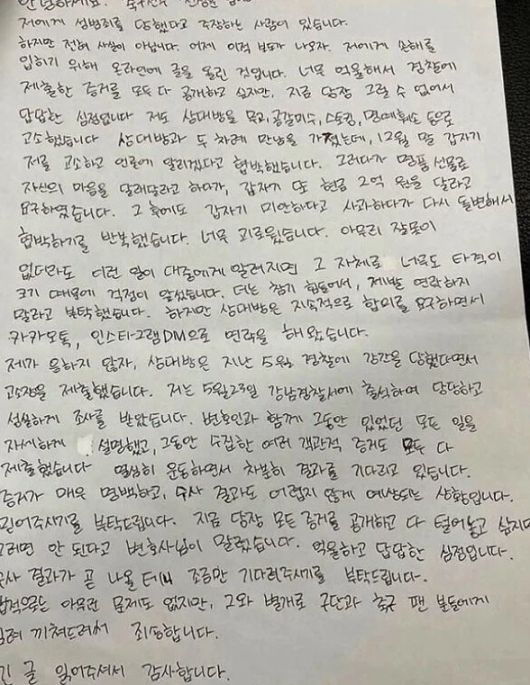 안녕하세요. 축구선수
저에게 성범죄를 당했다고 주장하는 사람이 있습니다.
하지만 전혀 사실이 아닙니다. 어제 이적 보도가 나오자. 저에게 손해를
입히기 위해 온라인에 글을 올린 것입니다. 너무 억울해서 경찰에
제출한 증거를 모두 다 공개하고 싶지만, 지금 당장 그럴 수 없어서
답답한 심정입니다 저도 상대방을 무고, 공갈미수, 스토킹, 명예훼손 등으로
고소했습니다 상대방과 두 차례 만남을 가졌는데, 12월 말 갑자기
저를 고소하고 언론에 알리겠다고 협박했습니다. 그러다가 명품 선물로
자신의 마음을 달래달라고 하다가, 갑자기 또 현금 2억 원을 달라고
요구하였습니다. 그 후에도 갑자기 미안하다고 사과하다가 다시 돌변해서
협박하기를 반복했습니다. 너무 괴로웠습니다. 아무리 잘못이
없더라도 이런 일이 대중에게 알려지면 그 자체로 너무도 타격이
크기 때문에 걱정이 앞섰습니다. 더는 참기 힘들어서, 제발 연락하지
말라고 부탁했습니다. 하지만 상대방은 지속적으로 합의를 요구하면서
카카오톡, 인스타그램DM으로 연락을 해왔습니다.
제가 응하지 않자, 상대방은 지난 5월 경찰에 강간을 당했다면서
고소장을 제출했습니다. 저는 5월23일 강남경찰서에 출석하여 당당하고
성실하게 조사를 받았습니다. 변호인과 함께 그동안 있었던 모든 일을
자세하게 설명했고, 그동안 수집한 여러 객관적 증거도 모두 다
제출했습니다 열심히 운동하면서 차분히 결과를 기다리고 있습니다.
증거가 매우 명백하고, 수사 결과도 어렵지 않게 예상되는 상황입니다.
믿어주시기를 부탁드립니다. 지금 당장 모든 증거를 공개하고 다 털어놓고 싶지만
그러면 안 된다고 변호사님이 말렸습니다. 억울하고 답답한 심정입니다.
수사 결과가 곧 나올 테니 조금만 기다려주시기를 부탁드립니다.
법적으로는 아무런 문제도 없지만, 그와 별개로 구단과 축구 팬 분들에게
심려 끼쳐드려서 죄송합니다.
긴 글 읽어주셔서 감사합니다.